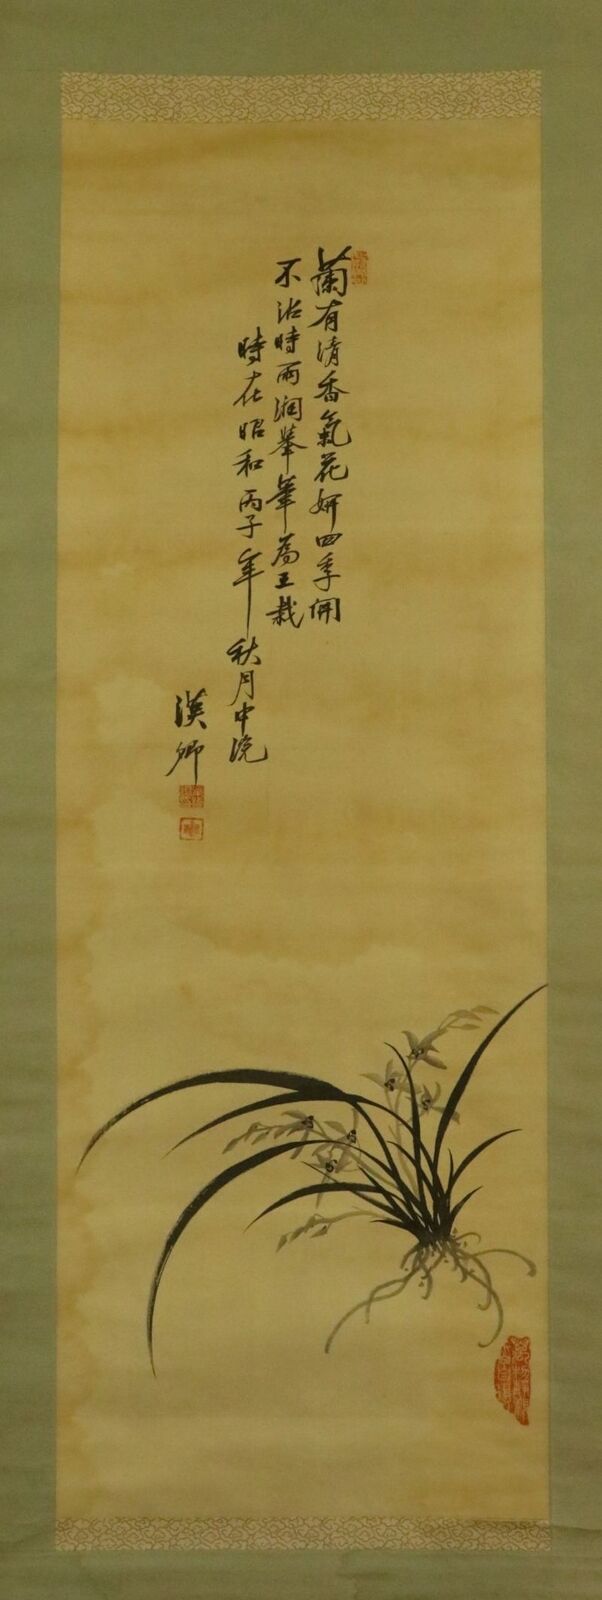 蘭有清香氣花妍四季開
不沾時雨潤舉筆為王栽
時在昭和丙子年秋月中浣
漢卿